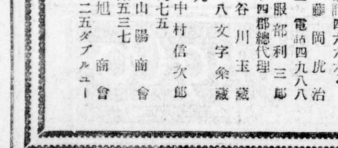 藤岡虎治
電話四九八八
服部利三郎
四郡總代理
谷川玉藏
八文字粂藏
中村信次郎
七五
山陽商會
五三七
旭商會
二五ダブルユー